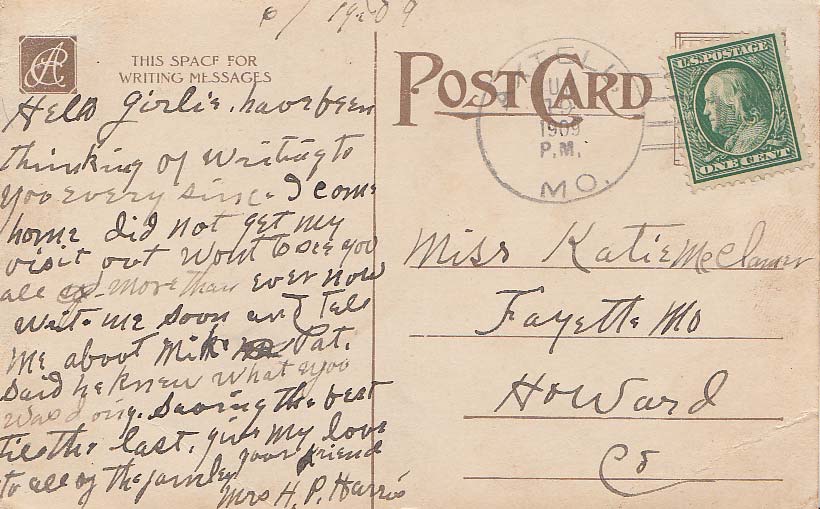 6/ 1909
THIS SPACE FOR
WRITING MESSAGES
Hello Girlie. have been
thinking of writing to
you every since I come
home did not get my
visit out want to see you
all more than ever now
write me soon and tell
me about Mike Pat.
said he knew what you
was doing. saving the best
till the last. give my love
to all of the family your friend
Mrs H. P. Harris
POST CARD
AXTELL
1909
P.M.
MO.
U.S. POSTAGE
ONE CENT
Miss Katie
Fayette Mo
Howard
Co